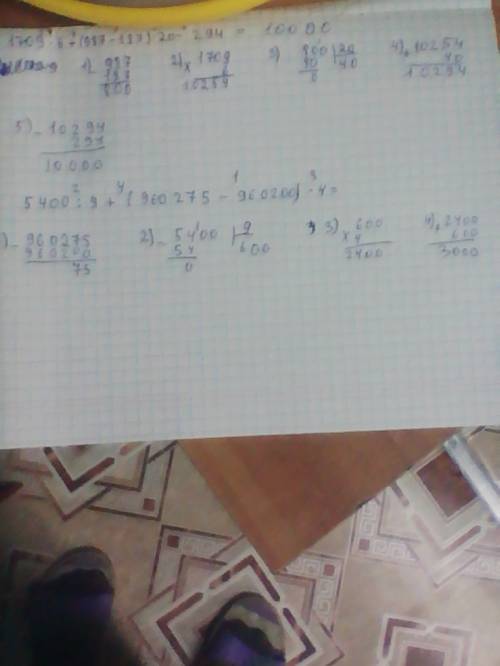 1709 · 6 + (987 - 187) : 20 - 294 = 10000
1) 987 2) × 1709 3) 800 20 4) + 10254
187 6 80 40 40
800 10254 0 10294
5) - 10294
294
10000
5400 : 9 + (960275 - 960200) · 4 =
1) - 960275 2) - 5400 9 3) × 600 4) + 2400
960200 54 600 4 600
75 0 2400 3000